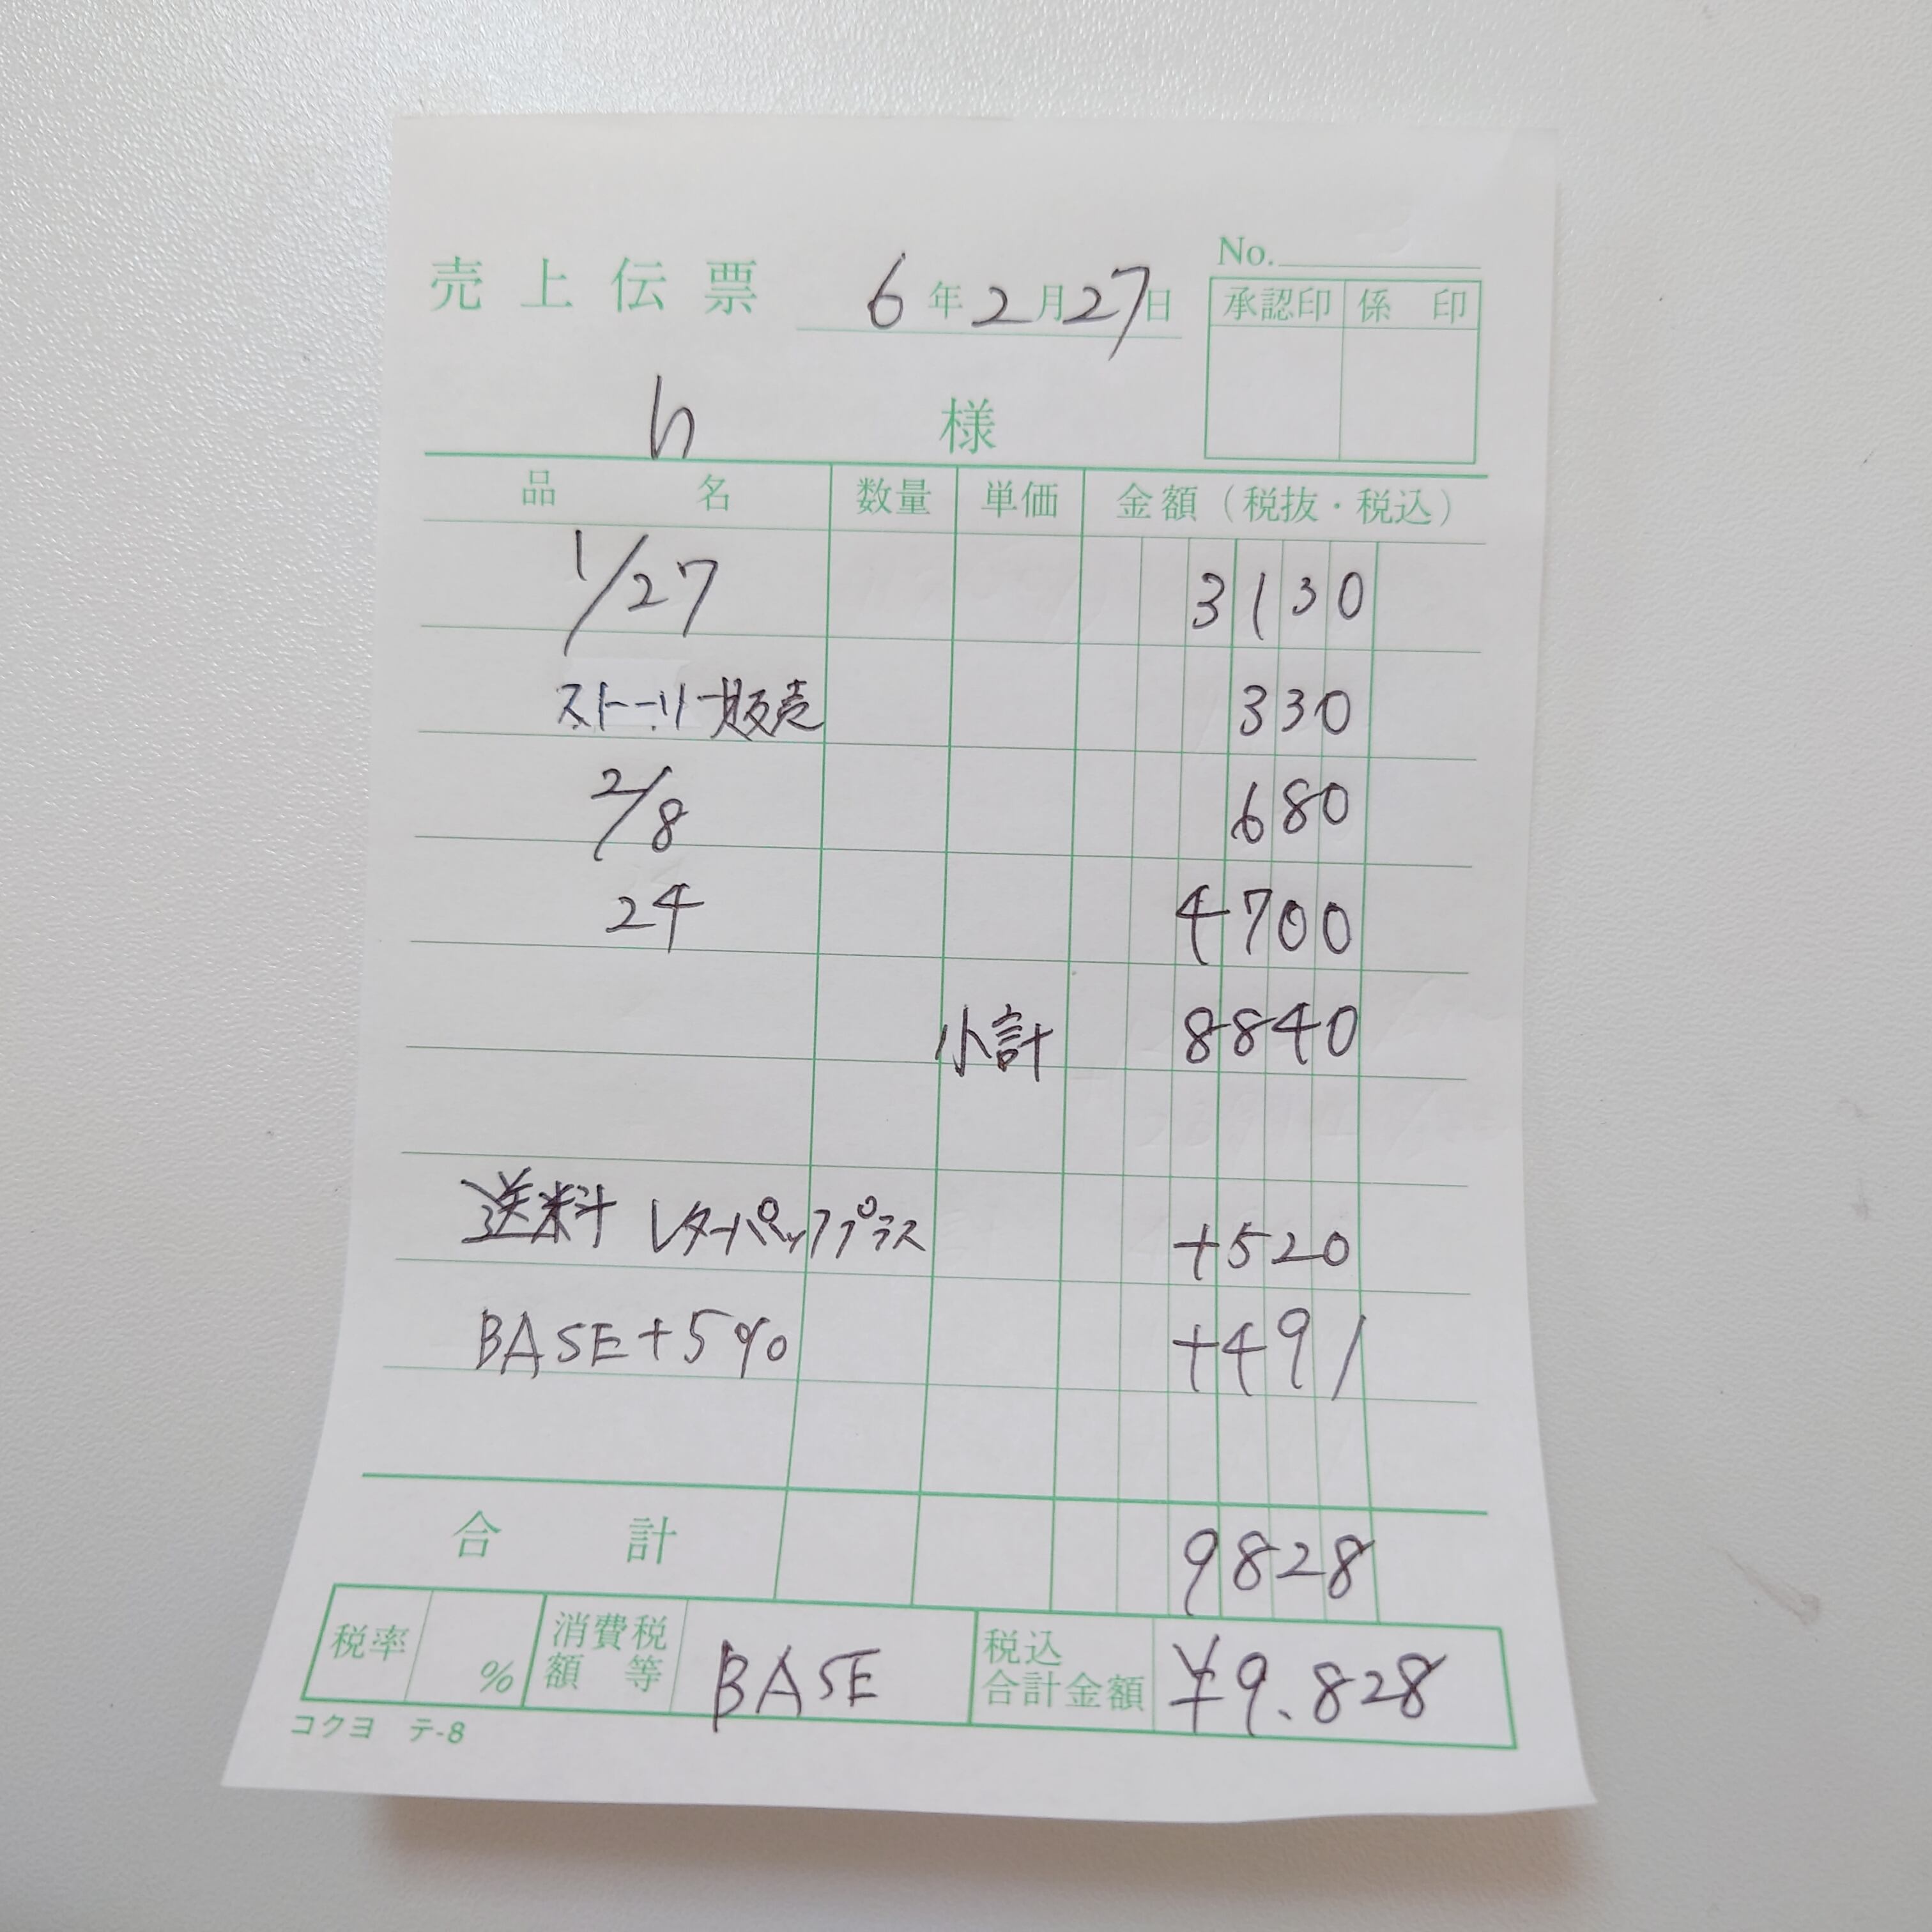 No.
売上伝票 6年2月27日
承認印 係印
h 様
品名 数量 単価 金額(税抜・税込)
1/27 3130
ストーリー販売 330
2/8 680
24 4700
小計 8840
送料 レターパックプラス +520
BASE+5% +491
合計 9828
税率 % 消費税額等 BASE 税込合計金額 ¥9.828
コクヨ テ-8